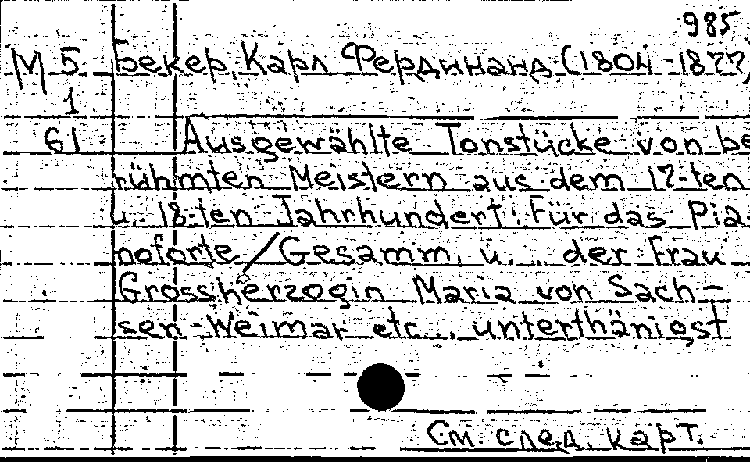 985
М 5 Бекер, Карл Фердинанд (1804-1877)
1
61 Ausgewählte Tonstücke von be
rühmten Meistern aus dem 17-ten
u. 18-ten Jahrhundert: Für das Pia
noforte / Gesamm. u. ... der Frau
Grossherzogin Maria von Sach-
sen-Weimar etc... unterthänigst
См. след. карт.